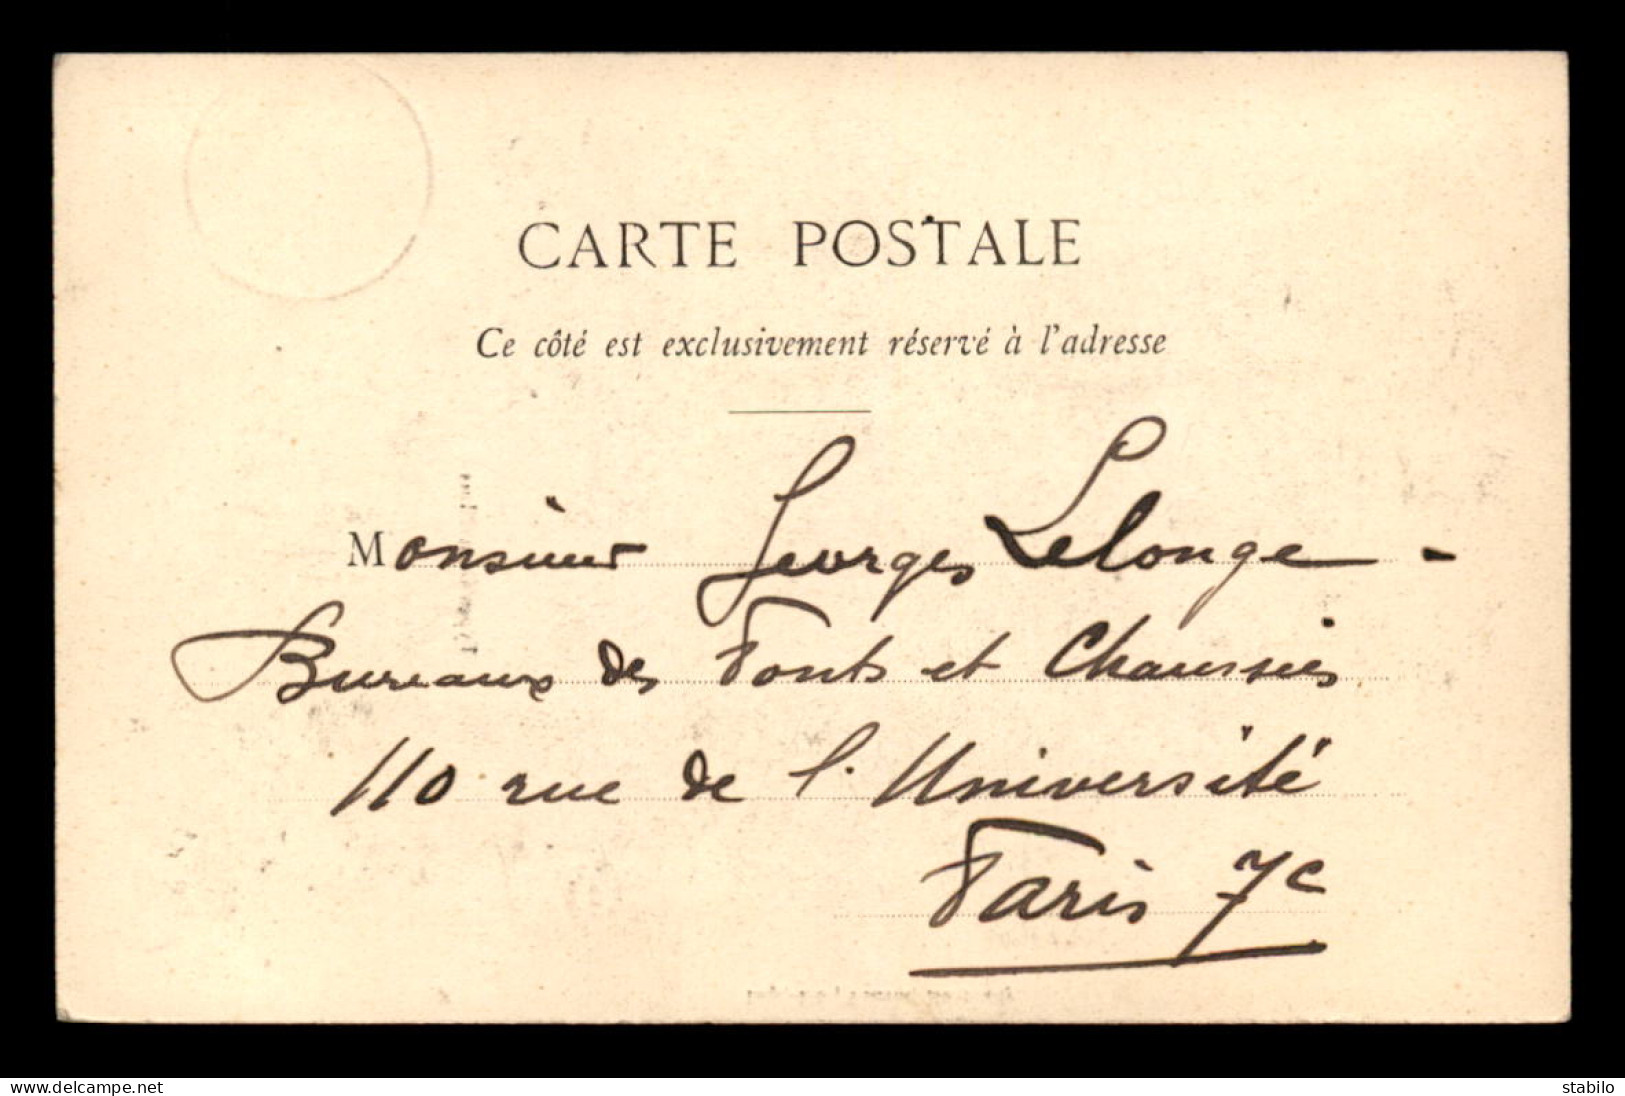 CARTE POSTALE
Ce côté est exclusivement réservé à l'adresse
Monsieur Georges Lelonge -
Bureaux des Ponts et Chaussées
110 rue de l'Université
Paris 7e
www.delcampe.net
stabilo